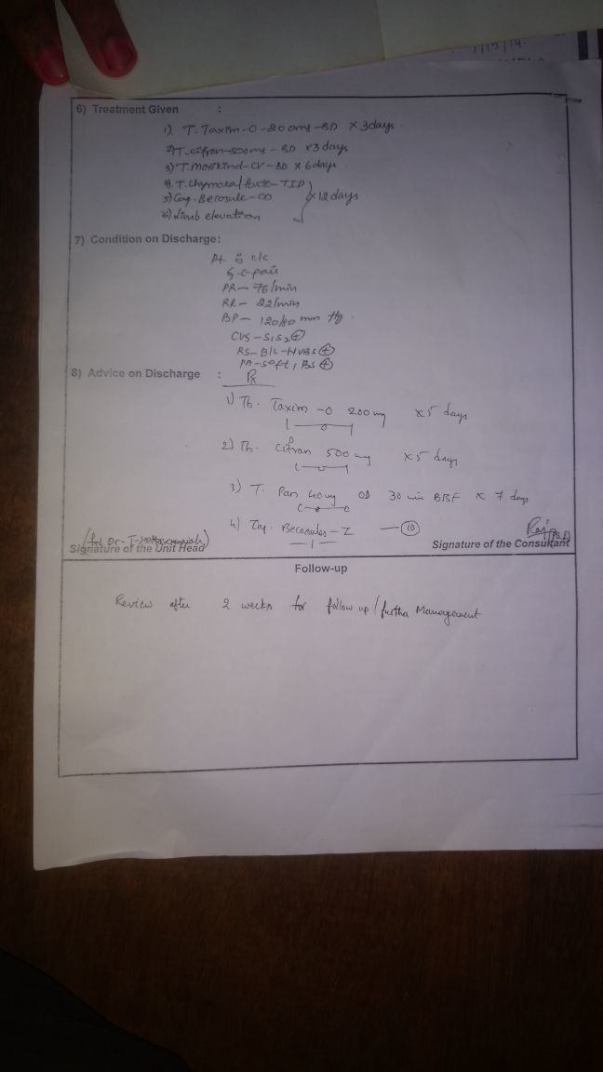 6) Treatment Given :
1) T. Taxim-O-200mg-BD x 3days
2) T. Cifran-500mg-BD x 3 days
3) T. Moxikind-CV-BD x 6 days
4) T. Chymoral forte-TID
5) Cap. Becosule-OD x 12 days
6) Limb elevation
7) Condition on Discharge:
Pt. is c/c
G.C-fair
PR- 76/min
RR- 22/min
BP- 120/80 mm Hg.
CVS-S1S2⊕
RS-B/L-NVBS⊕
PA-Soft, BS⊕
8) Advice on Discharge : Rx
1) Tb. Taxim-O 200mg x 5 days
1—0—1
2) Tb. Cifran 500mg x 5 days
3) T. Pan 40mg OD 30 min BBF x 7 days
4) Cap. Becosules-Z — 10
— 1 —
(for Dr. T-
Signature of the Unit Head Signature of the Consultant
Follow-up
Review after 2 weeks for follow up / further Management